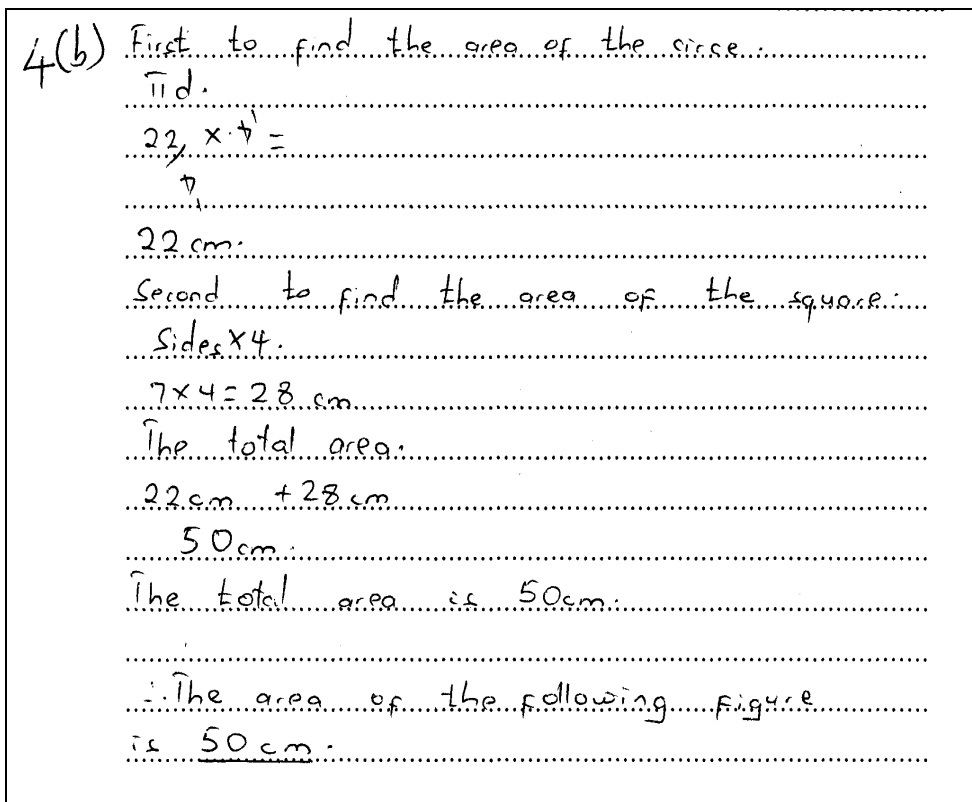 4(b) First to find the area of the circe.
πd.
22/7 × 7 =
22 cm.
Second to find the area of the square.
Sides × 4.
7 × 4 = 28 cm
The total area.
22 cm + 28 cm
50 cm.
The total area is 50cm.
∴ The area of the following figure
is 50 cm.